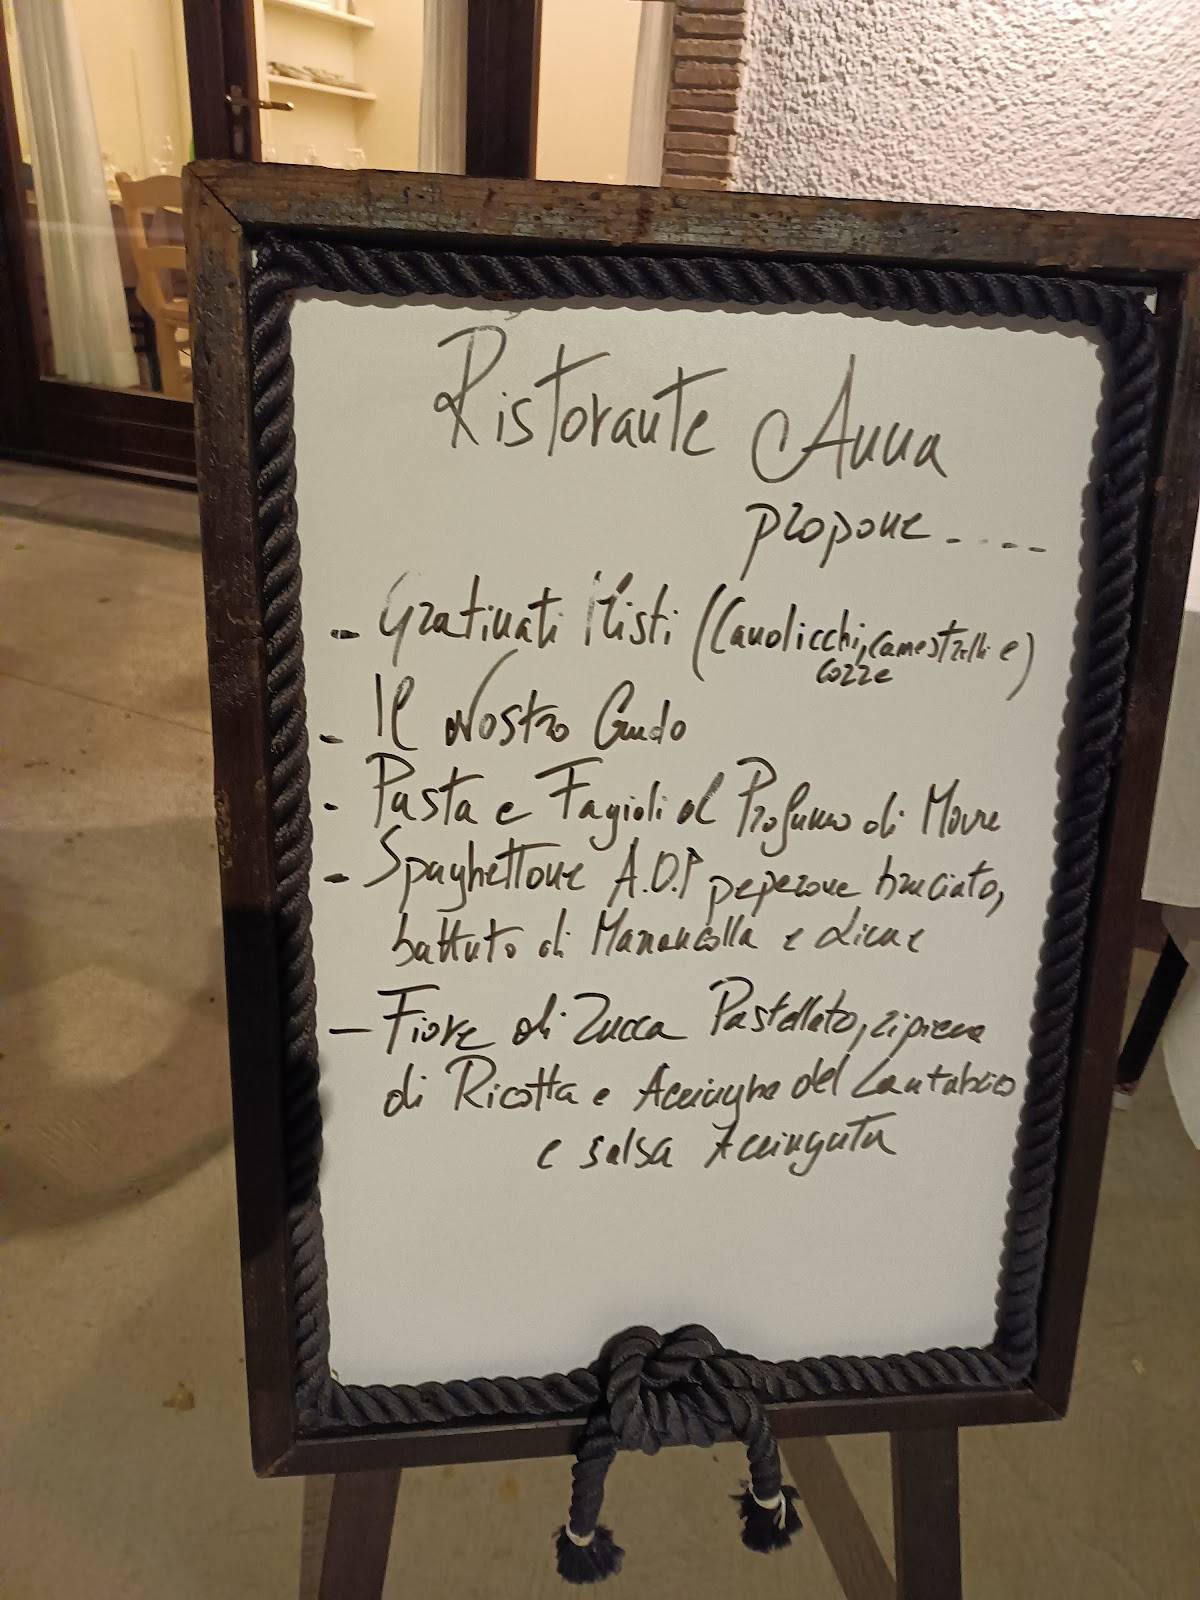 Ristorante Anna
propone....
- Gratinati Misti (Canolicchi, Canestrelli e
cozze)
- Il Nostro Crudo
- Pasta e Fagioli al Profumo di Mare
- Spaghettone A.O.P peperone bruciato,
battuto di Mazzancolla e Lime
- Fiore di Zucca Pastellato, ripieno
di Ricotta e Acciughe del Cantabrico
e salsa Acciugata